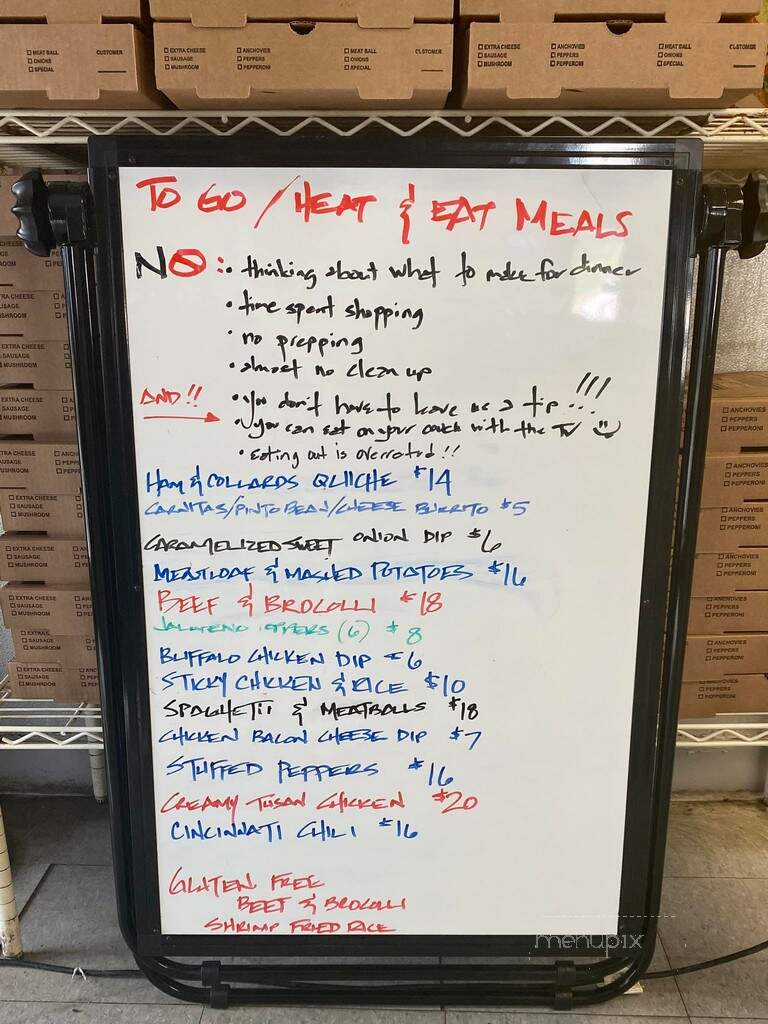 MEAT BALL CUSTOMER
ONIONS
SPECIAL
EXTRA CHEESE ANCHOVIES MEAT BALL CUSTOMER
SAUSAGE PEPPERS ONIONS
MUSHROOM PEPPERONI SPECIAL
EXTRA CHEESE ANCHOVIES MEAT BALL CUSTOMER
SAUSAGE PEPPERS ONIONS
MUSHROOM PEPPERONI SPECIAL
TO GO / HEAT & EAT MEALS
NO: • thinking about what to make for dinner
• time spent shopping
• no prepping
• almost no clean up
AND!! • you don't have to leave us a tip!!!
• you can eat on your couch with the TV
• eating out is overrated!!
HAM & COLLARDS QUICHE $14
CARNITAS/PINTO BEAN/CHEESE BURRITO $5
CARAMELIZED SWEET ONION DIP $6
MEATLOAF & MASHED POTATOES $16
BEEF & BROCOLLI $18
(6) $8
BUFFALO CHICKEN DIP $6
STICKY CHICKEN & RICE $10
SPAGHETII & MEATBALLS $18
CHICKEN BACON CHEESE DIP $7
STUFFED PEPPERS $16
CREAMY TUSAN CHICKEN $20
CINCINNATI CHILI $16
GLUTEN FREE
BEEF & BROCOLLI
SHRIMP FRIED RICE
menupix